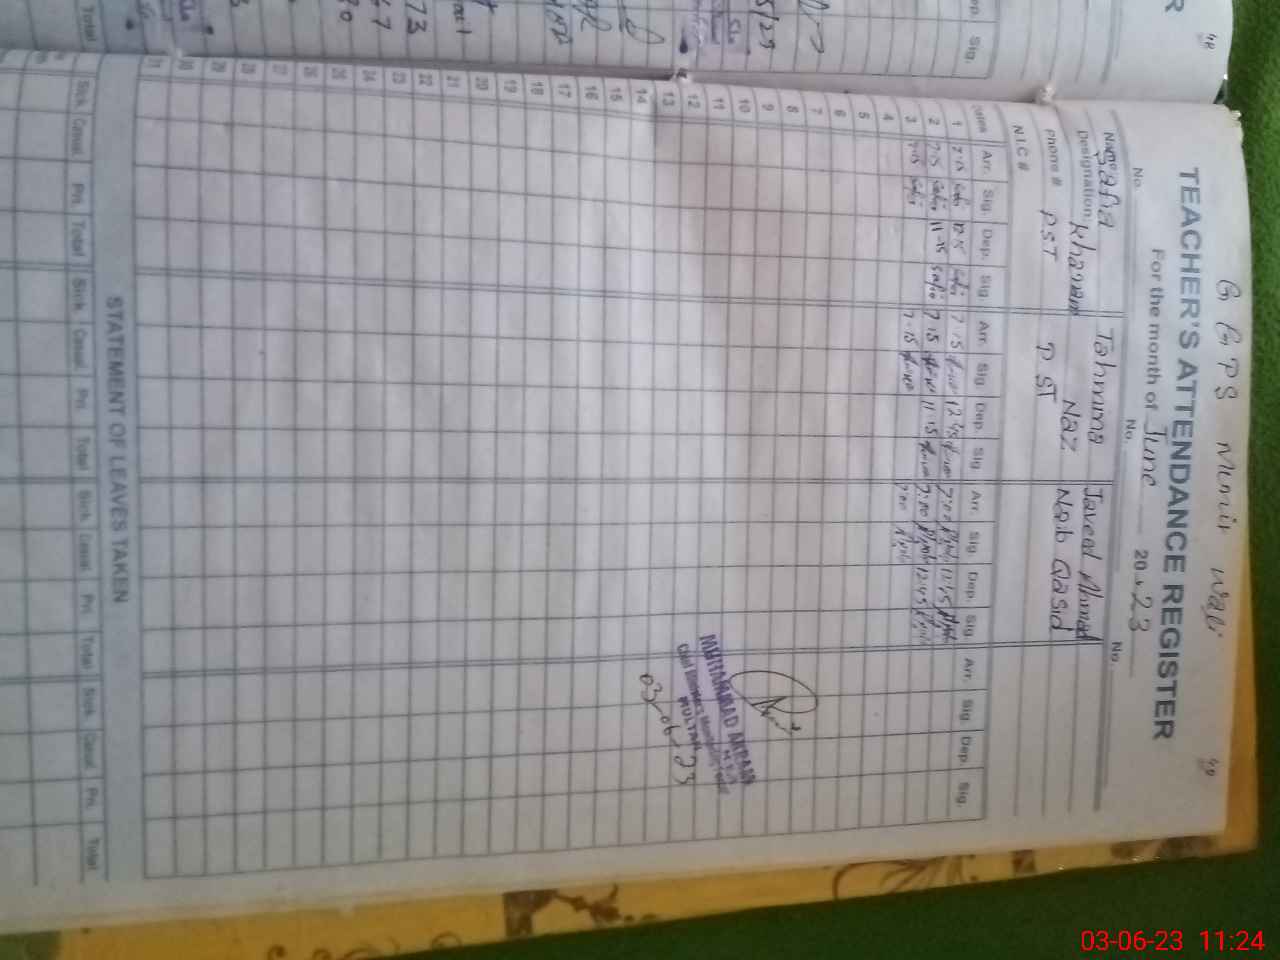 48
49
G G P S Munir Wali
TEACHER'S ATTENDANCE REGISTER
For the month of June 2023
No. No. No.
Name Safia Khanam Tahmina Naz Javeed Ahmad
Designation PST P.ST Naib Qasid
Phone #
N.I.C #
Dates Arr. Sig. Dep. Sig. Arr. Sig Dep. Sig. Arr. Sig Dep. Sig. Arr. Sig. Dep. Sig.
1 7.15 Safia 12.15 Safia 7.15 12.45 7:00 12.45
2 7.15 Safia 11-15 Safia 7.15 11.15 7:00 12:45
3 7.15 Safia 7.15 7:00
4
5
6
7
8
9
10
11
12
13
14
15
16
17
18
19
20
21
22
23
24
25
26
27
28
29
30
31
MUHAMMAD AKRAM
MULTAN
03-06-23
STATEMENT OF LEAVES TAKEN
Sick Casual Pri. Total Sick Casual Pri. Total Sick Casual Pri. Total Sick Casual Pri. Total
03-06-23 11:24